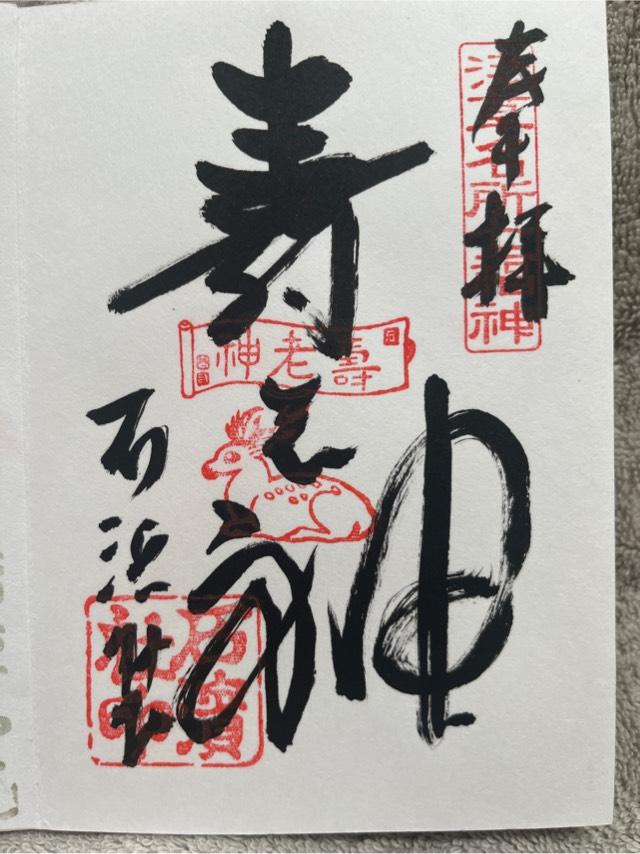 奉拝
浅草名所七福神
寿老神
壽老神
石浜神社
石濱